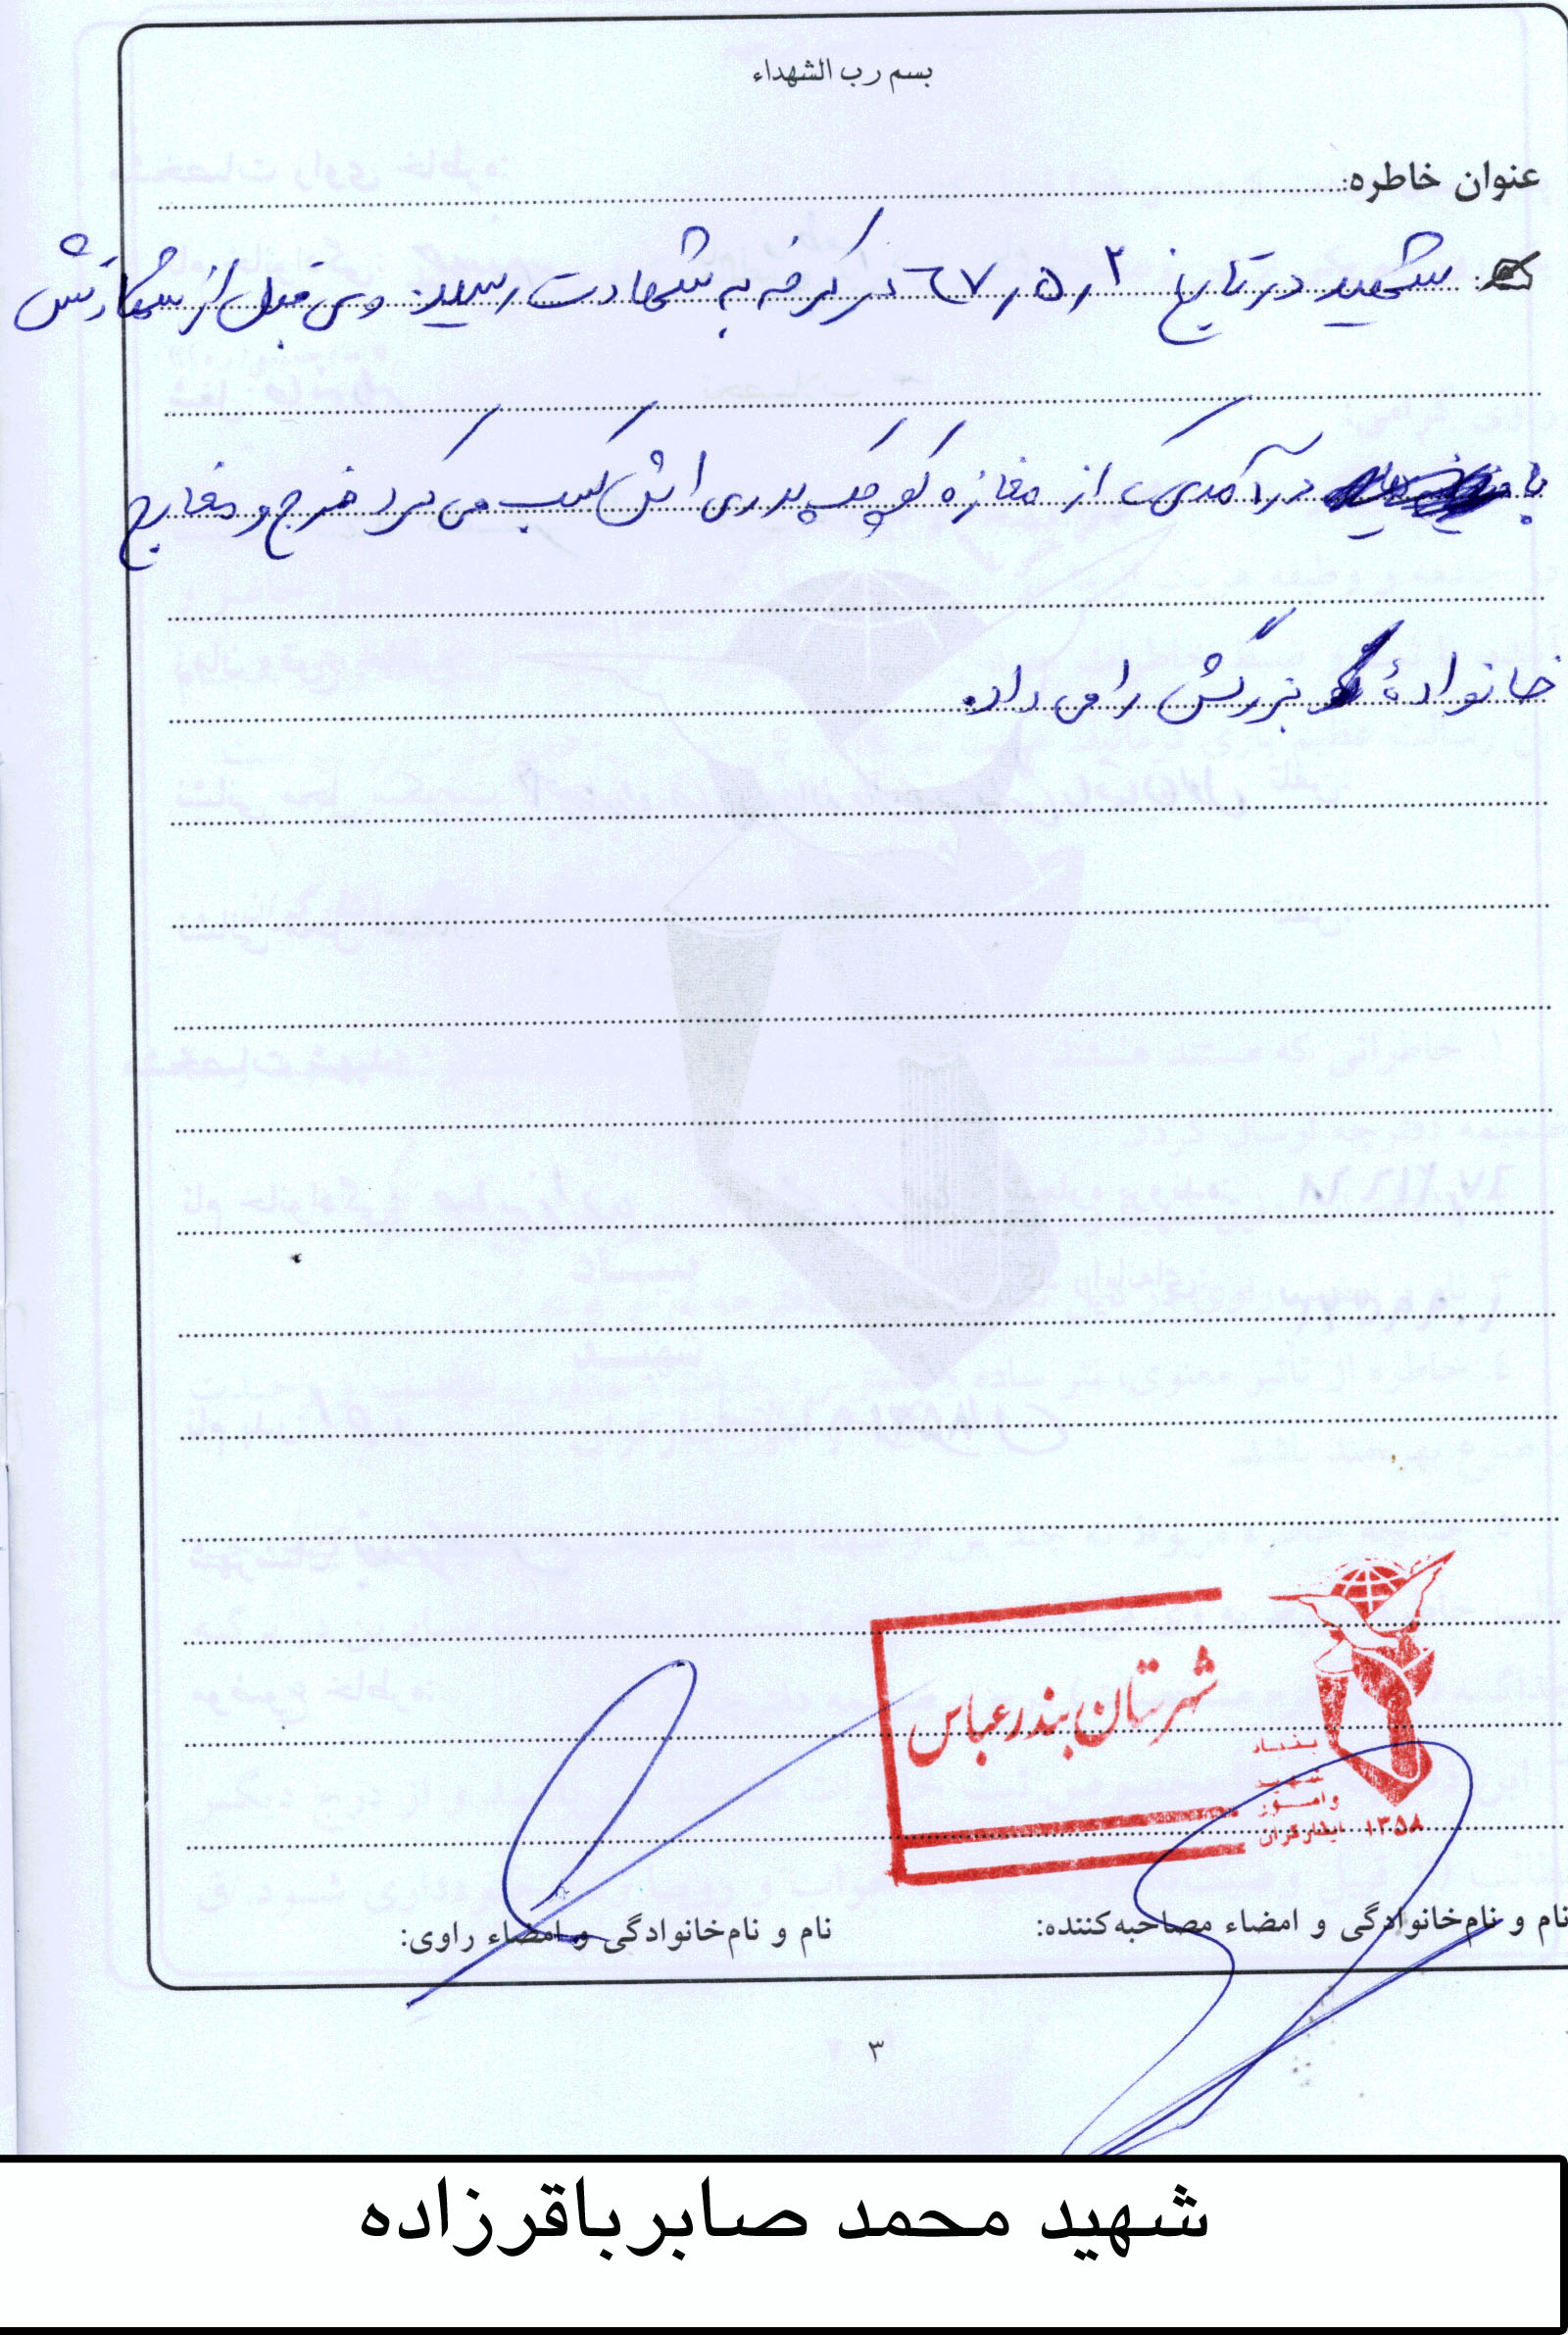 بسم رب الشهداء
عنوان خاطره:
شهید در تاریخ ۶۷٫۵٫۲ در کرخه به شهادت رسید. وی قبل از شهادتش
با درآمدی که از مغازه کوچک پدری اش کسب می کرد خرج و مخارج
خانوادهٔ بزرگش را می داد.
شهرستان بندرعباس
بنیاد
شهید
و امور
ایثارگران ۱۳۵۸
نام و نام‌خانوادگی و امضاء مصاحبه‌کننده: نام و نام‌خانوادگی و امضاء راوی:
۳
شهید محمد صابرباقرزاده